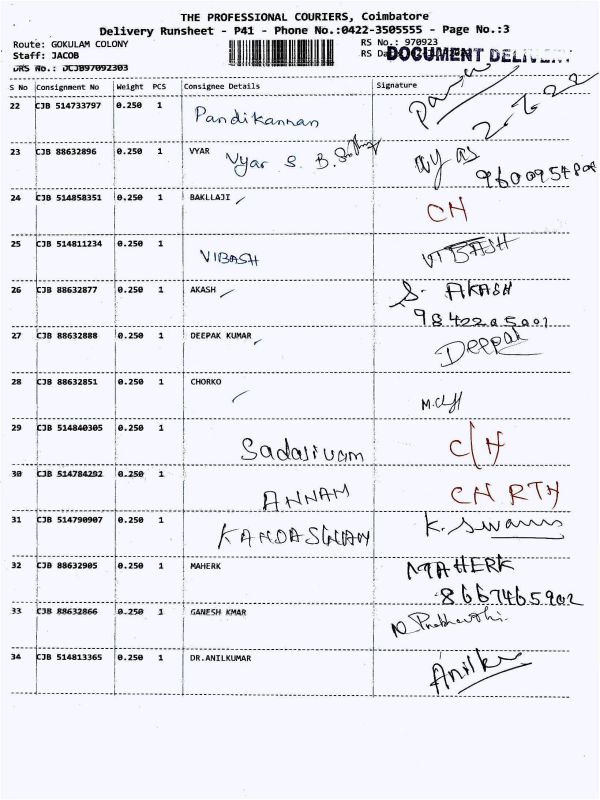 THE PROFESSIONAL COURIERS, Coimbatore
Delivery Runsheet - P41 - Phone No.:0422-3505555 - Page No.:3
Route: GOKULAM COLONY
RS No.: 970923
Staff: JACOB
RS
DOCUMENT
DRS No.: DCJB97092303
S No Consignment No Weight PCS Consignee Details Signature
22 CJB 514733797 0.250 1 Pandikannan
23 CJB 88632896 0.250 1 VYAR
Vyar S. B.
9600954808
24 CJB 514858351 0.250 1 BAKLLAJI CH
25 CJB 514811234 0.250 1 VIBASH VIBASH
26 CJB 88632877 0.250 1 AKASH S. AKASH
27 CJB 88632888 0.250 1 DEEPAK KUMAR Deepak
28 CJB 88632851 0.250 1 CHORKO
29 CJB 514840305 0.250 1 Sadasivam C/H
30 CJB 514784292 0.250 1 ANNAM CH RTH
31 CJB 514790907 0.250 1 KANDASWAM K. Swamy
32 CJB 88632905 0.250 1 MAHERK MAHERK
8667465902
33 CJB 88632866 0.250 1 GANESH KMAR
34 CJB 514813365 0.250 1 DR.ANILKUMAR